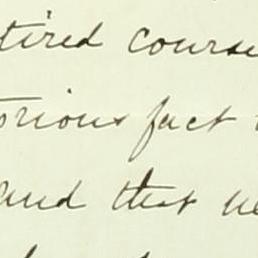 tired course
orious fact
and that